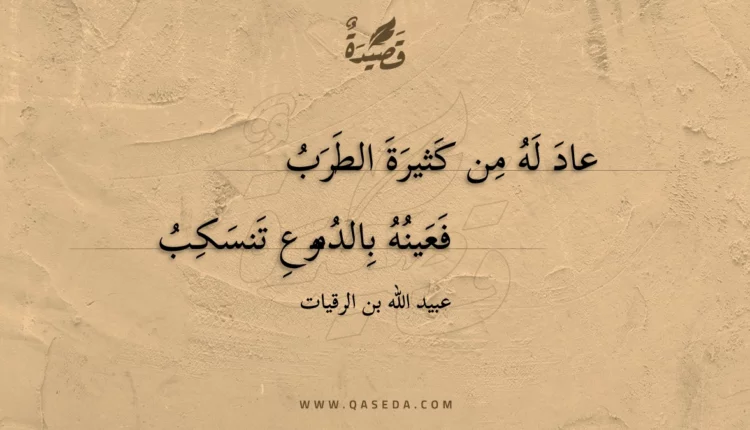 قَصِيدَةٌ
عادَ لَهُ مِن كَثيرَةَ الطَرَبُ
فَعَينُهُ بِالدُموعِ تَنسَكِبُ
عبيد الله بن الرقيات
WWW.QASEDA.COM